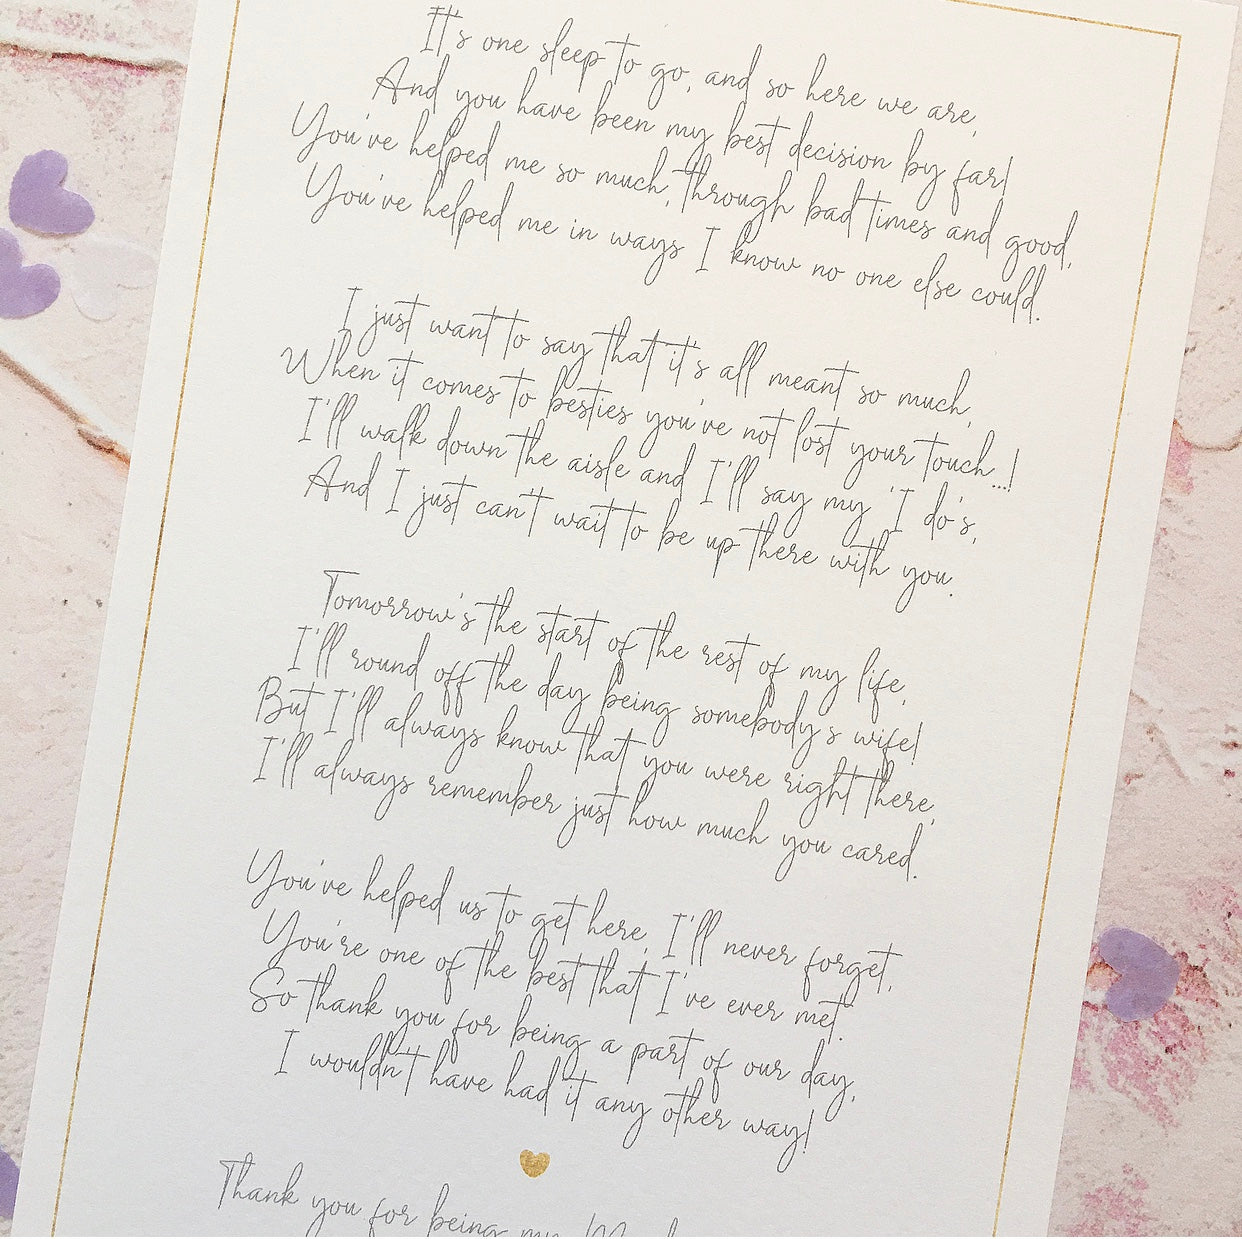 It's one sleep to go, and so here we are,
And you have been my best decision by far!
You've helped me so much, through bad times and good,
You've helped me in ways I know no one else could.
I just want to say that it's all meant so much,
When it comes to besties you've not lost your touch...!
I'll walk down the aisle and I'll say my 'I do's,
And I just can't wait to be up there with you.
Tomorrow's the start of the rest of my life,
I'll round off the day being somebody's wife!
But I'll always know that you were right there,
I'll always remember just how much you cared.
You've helped us to get here, I'll never forget,
You're one of the best that I've ever met.
So thank you for being a part of our day,
I wouldn't have had it any other way!
Thank you for being my